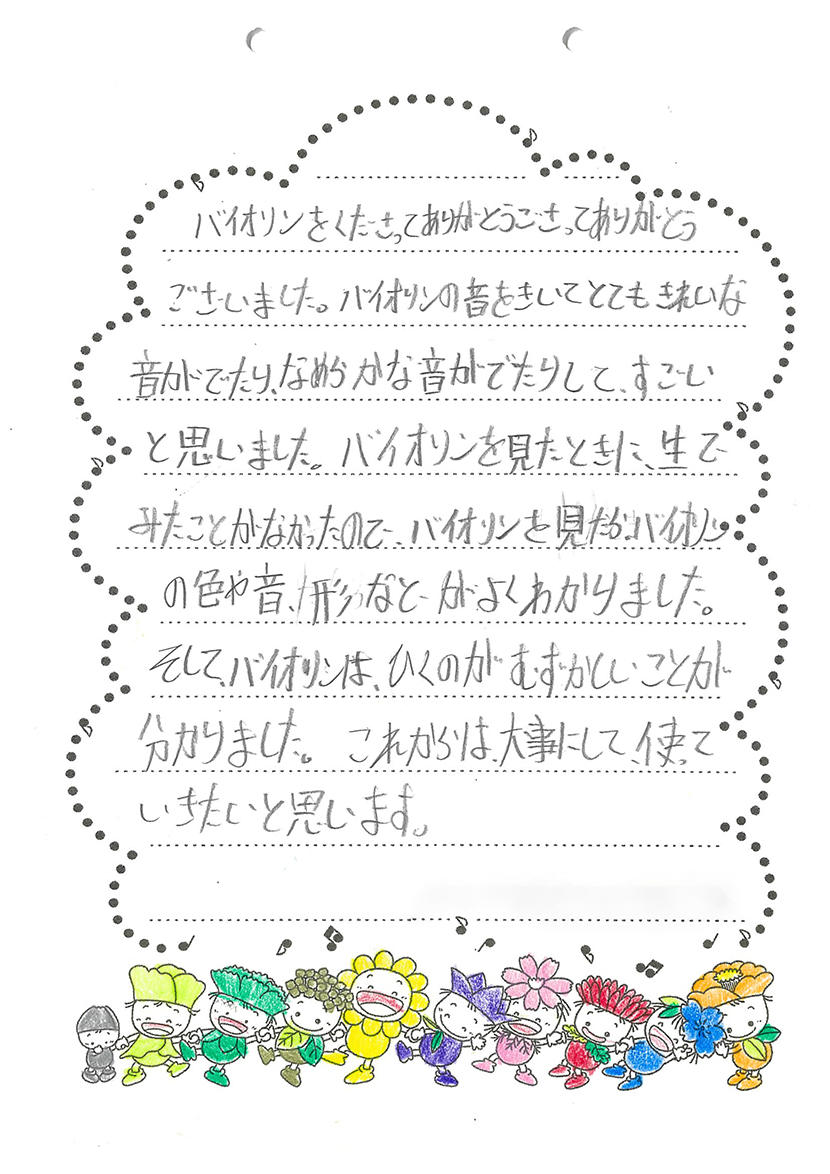 バイオリンをくださってありがとうごさってありがとう
ございました。バイオリンの音をきいてとてもきれいな
音がでたり、なめらかな音がでたりして、すごい
と思いました。バイオリンを見たときに、生で
みたことがなかったので、バイオリンを見たからバイオリン
の色や音、形などがよくわかりました。
そして、バイオリンは、ひくのがむずかしいことが
分かりました。これからは、大事にして、使って
いきたいと思います。